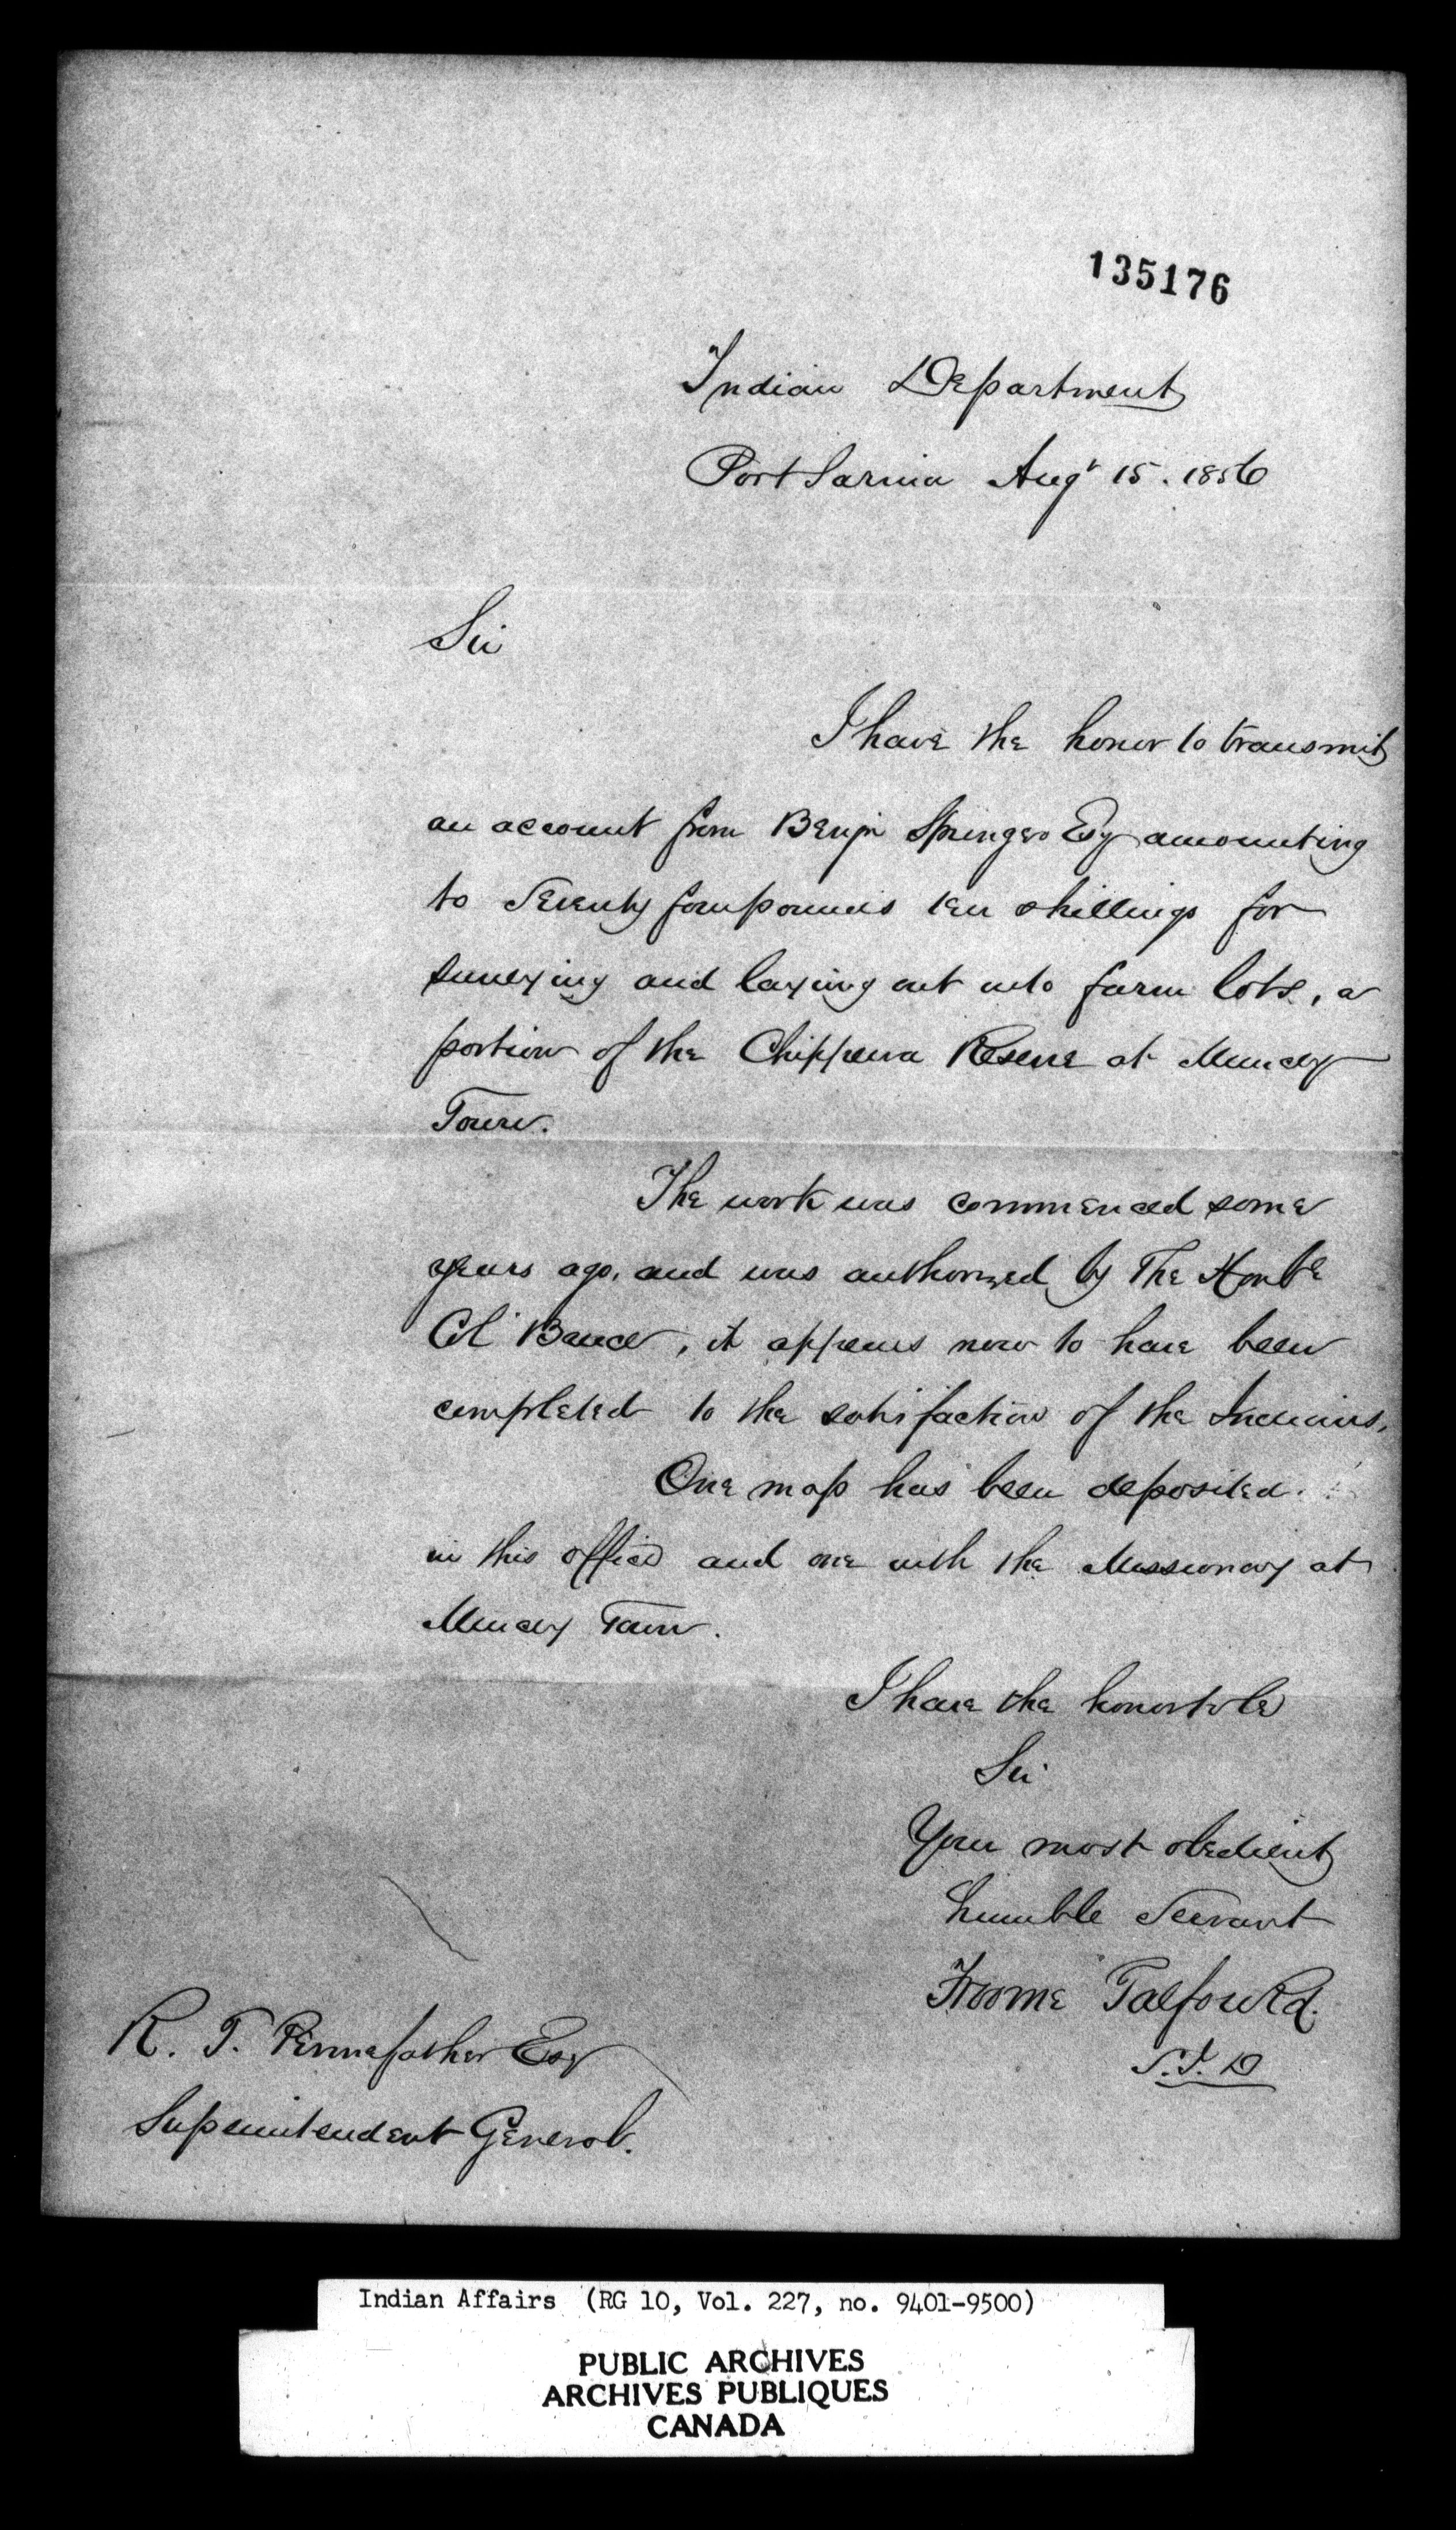 135176
Indian Department
Port Sarnia Augt 15. 1856
Sir
I have the honor to transmit
an account from Benjn Springer Esq amounting
to Seventy four pounds ten shillings for
surveying and laying out into farm lots, a
portion of the Chippewa Reserve at Muncey
Town.
The work was commenced some
years ago, and was authorized by The Honble
Col Bruce, it appears now to have been
completed to the satisfaction of the Indians,
One map has been deposited
in this office and one with the Missionary at
Muncey Town.
I have the honor to be
Sir
Your most obedient
humble Servant
Froome Talfourd.
S.I.D
R. T. Pennefather Esqr
Superintendent General.
Indian Affairs (RG 10, Vol. 227, no. 9401-9500)
PUBLIC ARCHIVES
ARCHIVES PUBLIQUES
CANADA